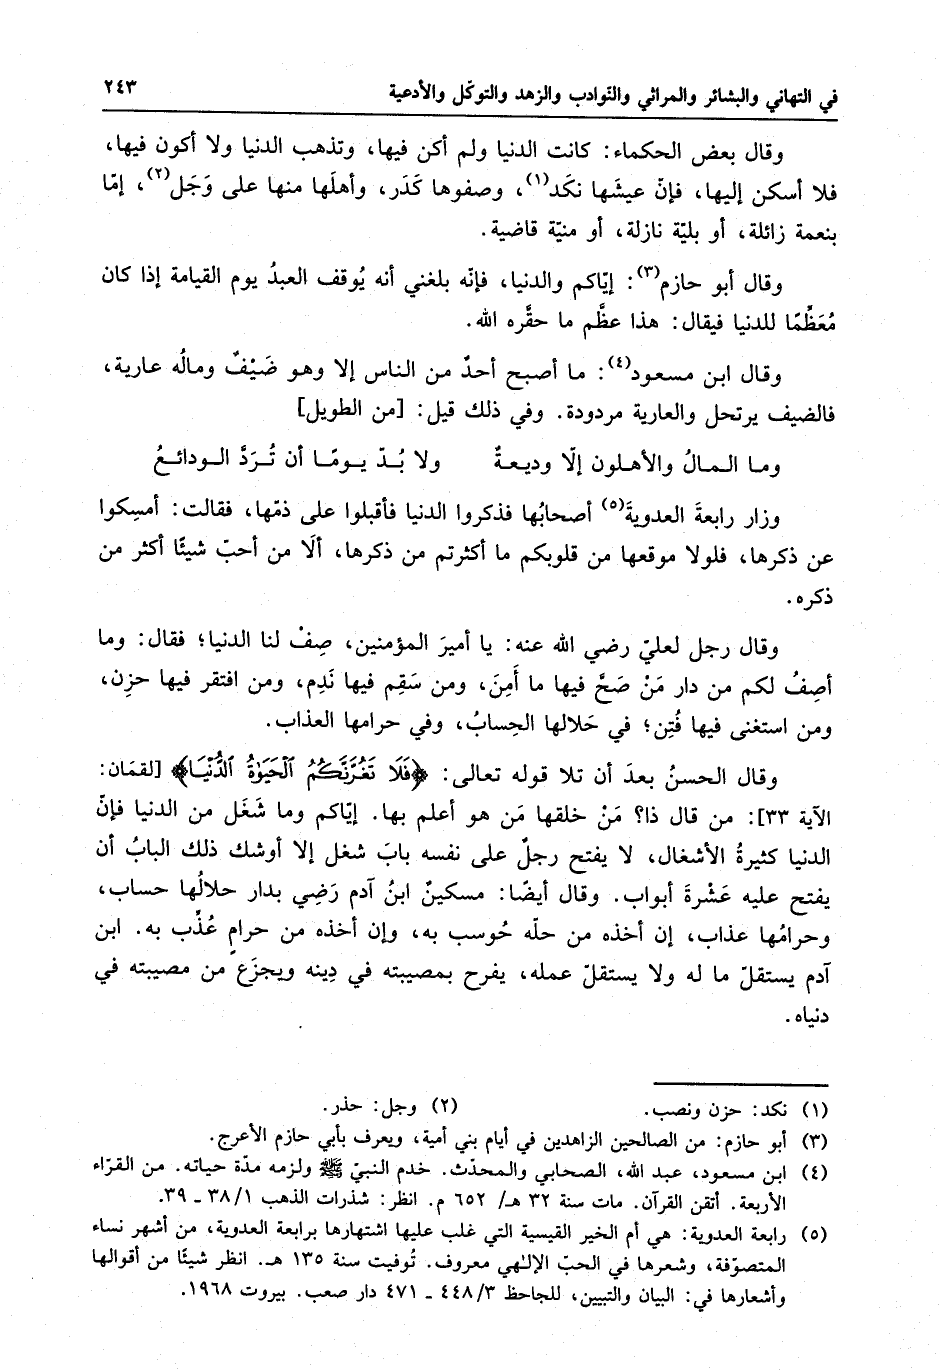 في التهاني والبشائر والمراثي والنّوادب والزهد والتوكّل والأدعية ٢٤٣
وقال بعض الحكماء: كانت الدنيا ولم أكن فيها، وتذهب الدنيا ولا أكون فيها،
فلا أسكن إليها، فإنّ عيشَها نكَد(١)، وصفوها كَدَر، وأهلَها منها على وَجَل(٢)، إمّا
بنعمة زائلة، أو بليّة نازلة، أو منيّة قاضية.
وقال أبو حازم(٣): إيّاكم والدنيا، فإنّه بلغني أنه يُوقف العبدُ يوم القيامة إذا كان
مُعَظِّمًا للدنيا فيقال: هذا عظَّم ما حقَّره الله.
وقال ابن مسعود(٤): ما أصبح أحدٌ من الناس إلا وهو ضَيْفٌ ومالُه عارية،
فالضيف يرتحل والعارية مردودة. وفي ذلك قيل: [من الطويل]
وما المالُ والأهلون إلّا وديعةٌ ولا بُدّ يومًا أن تُرَدَّ الودائعُ
وزار رابعةَ العدويةَ(٥) أصحابُها فذكروا الدنيا فأقبلوا على ذمّها، فقالت: أمسِكوا
عن ذكرها، فلولا موقعها من قلوبكم ما أكثرتم من ذكرها، ألَا من أحبّ شيئًا أكثر من
ذكره.
وقال رجل لعليّ رضي الله عنه: يا أميرَ المؤمنين، صِفْ لنا الدنيا؛ فقال: وما
أصِفُ لكم من دار مَنْ صَحَّ فيها ما أَمِنَ، ومن سَقِم فيها نَدِم، ومن افتقر فيها حزِن،
ومن استغنى فيها فُتِن؛ في حَلالها الحِسابُ، وفي حرامها العذاب.
وقال الحسنُ بعدَ أن تلا قوله تعالى: ﴿فَلَا تَغُرَّنَّكُمُ ٱلْحَيَوٰةُ ٱلدُّنْيَا﴾ [لقمَان:
الآية ٣٣]: من قال ذا؟ مَنْ خلقها مَن هو أعلم بها. إيّاكم وما شَغَل من الدنيا فإنّ
الدنيا كثيرةُ الأشغال، لا يفتح رجلٌ على نفسه بابَ شغل إلا أوشك ذلك البابُ أن
يفتح عليه عَشْرةَ أبواب. وقال أيضًا: مسكينٌ ابنُ آدم رَضِي بدار حلالُها حساب،
وحرامُها عذاب، إن أخذه من حلّه حُوسب به، وإن أخذه من حرامٍ عُذِّب به. ابن
آدم يستقلّ ما له ولا يستقلّ عمله، يفرح بمصيبته في دِينه ويجزَع من مصيبته في
دنياه.
(١) نكد: حزن ونصب. (٢) وجل: حذر.
(٣) أبو حازم: من الصالحين الزاهدين في أيام بني أمية، ويعرف بأبي حازم الأعرج.
(٤) ابن مسعود، عبد الله، الصحابي والمحدّث. خدم النبيّ ﷺ ولزمه مدّة حياته. من القرّاء
الأربعة. أتقن القرآن. مات سنة ٣٢ هـ/ ٦٥٢ م. انظر: شذرات الذهب ٣٨/١ ـ ٣٩.
(٥) رابعة العدوية: هي أم الخير القيسية التي غلب عليها اشتهارها برابعة العدوية، من أشهر نساء
المتصوّفة، وشعرها في الحبّ الإلهي معروف. تُوفيت سنة ١٣٥ هـ. انظر شيئًا من أقوالها
وأشعارها في: البيان والتبيين، للجاحظ ٤٤٨/٣ ـ ٤٧١ دار صعب. بيروت ١٩٦٨.